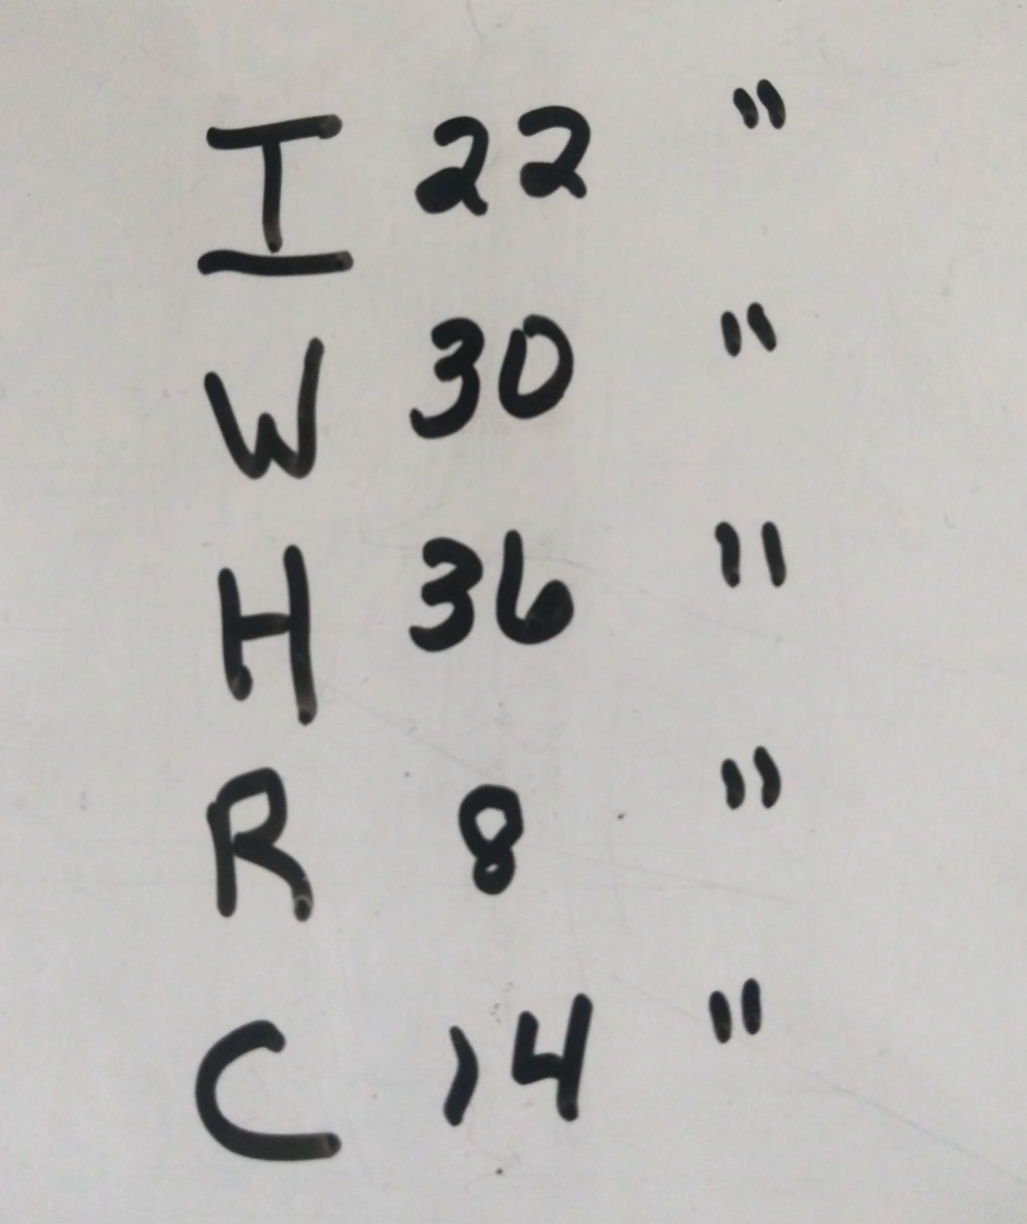 I 22 "
W 30 "
H 36 "
R 8 "
C 14 "